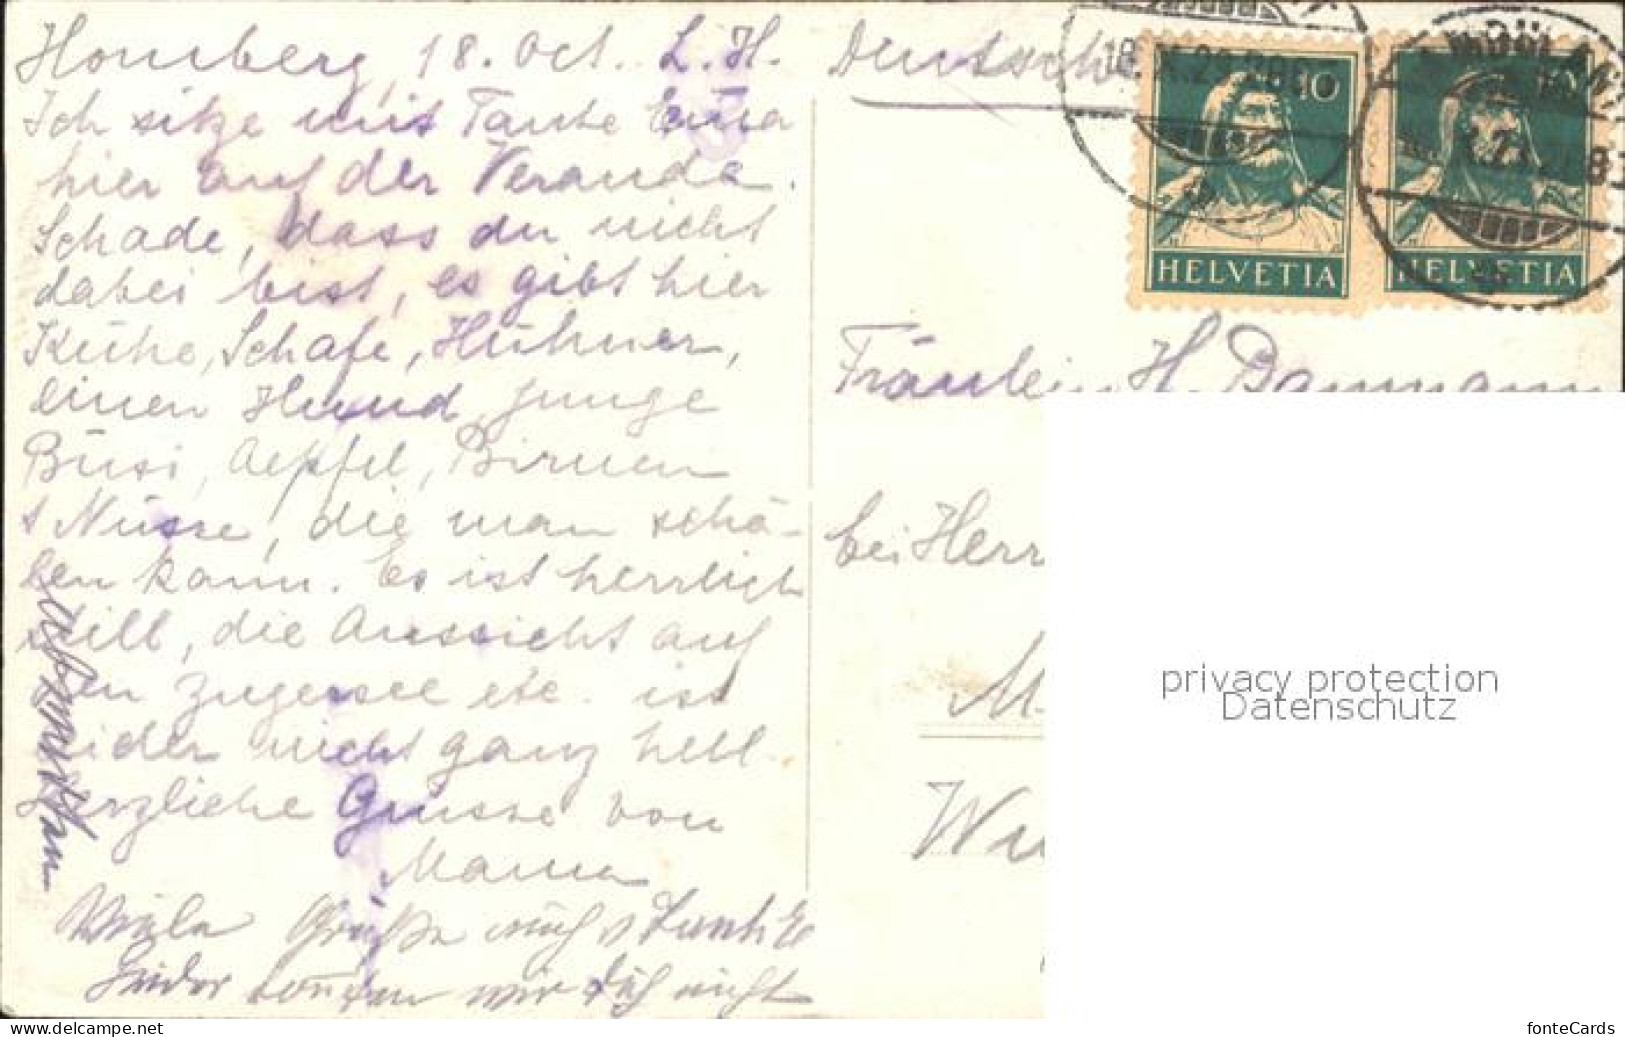 Homberg, 18. Oct. L. H.
Ich sitze mit Tante Erna
hier auf der Veranda.
Schade, dass du nicht
dabei bist, es gibt hier
Kühe, Schafe, Hühner,
einen Hund, junge
Büsi, Aepfel, Birnen
& Nüsse, die man schä-
len kann. Es ist herrlich
still, die Aussicht auf
den Zugersee etc. ist
leider nicht ganz hell.
Herzliche Grüsse von
Mama
Viele Grüße auch v Tante E
Leider konnten wir Dich nicht
Deutschl
18. X. 29
10
HELVETIA
10
HELVETIA
Fräulein H. Dammann
bei Herr
M
Wu
privacy protection
Datenschutz
www.delcampe.net
fonteCards